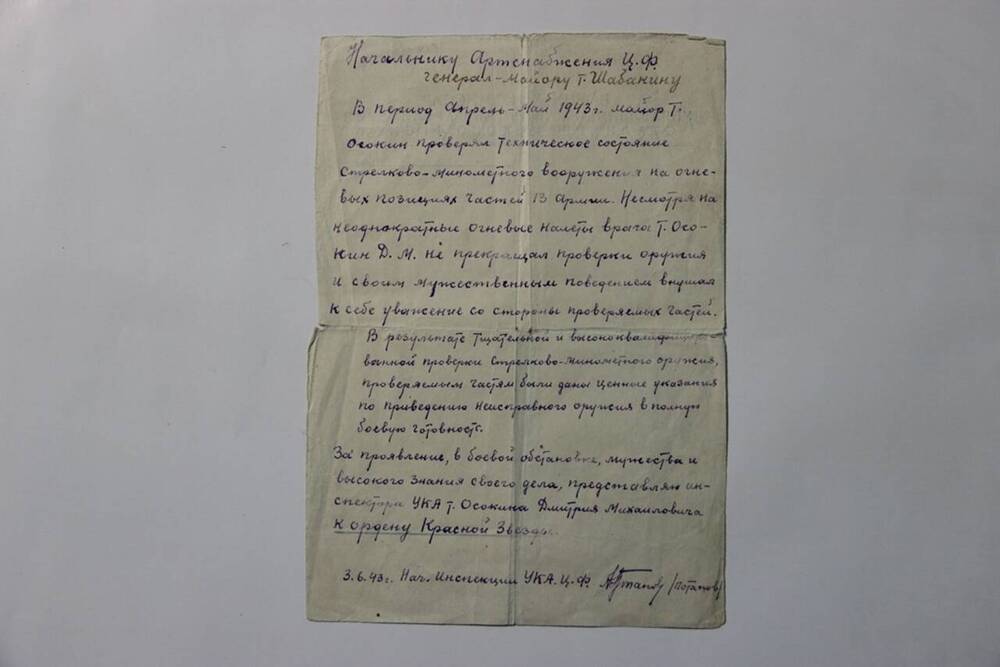 Начальнику Артснабжения Ц.Ф.
генерал-майору т. Шабакину
В период Апрель-Май 1943г. майор Т.
Осокин проверял техническое состояние
стрелково-минометного вооружения на огне-
вых позициях частей 13 Армии. Несмотря на
неоднократные огневые налеты врага т. Осо-
кин Д.М. не прекращал проверки оружия
и своим мужественным поведением внушал
к себе уважение со стороны проверяемых частей.
В результате тщательной и высококвалифициро-
ванной проверки стрелково-минометного оружия,
проверяемым частям были даны ценные указания
по приведению неисправного оружия в полную
боевую готовность.
За проявление, в боевой обстановке, мужества и
высокого знания своего дела, представляю ин-
спектора УКА т. Осокина Дмитрия Михайловича
к ордену Красной Звезды.
3.6.43г. Нач. Инспекции УКА. Ц.Ф. (Потапов)